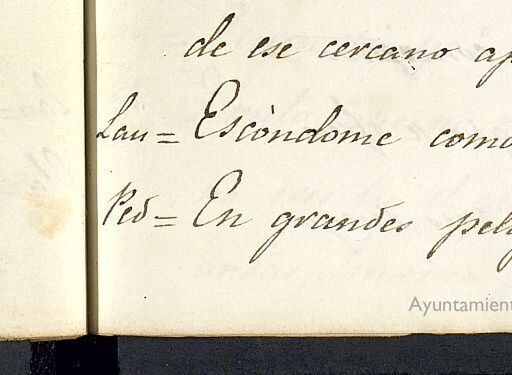 de ese cercano
Lau= Escòndome
Ped= En grandes
Ayuntamient